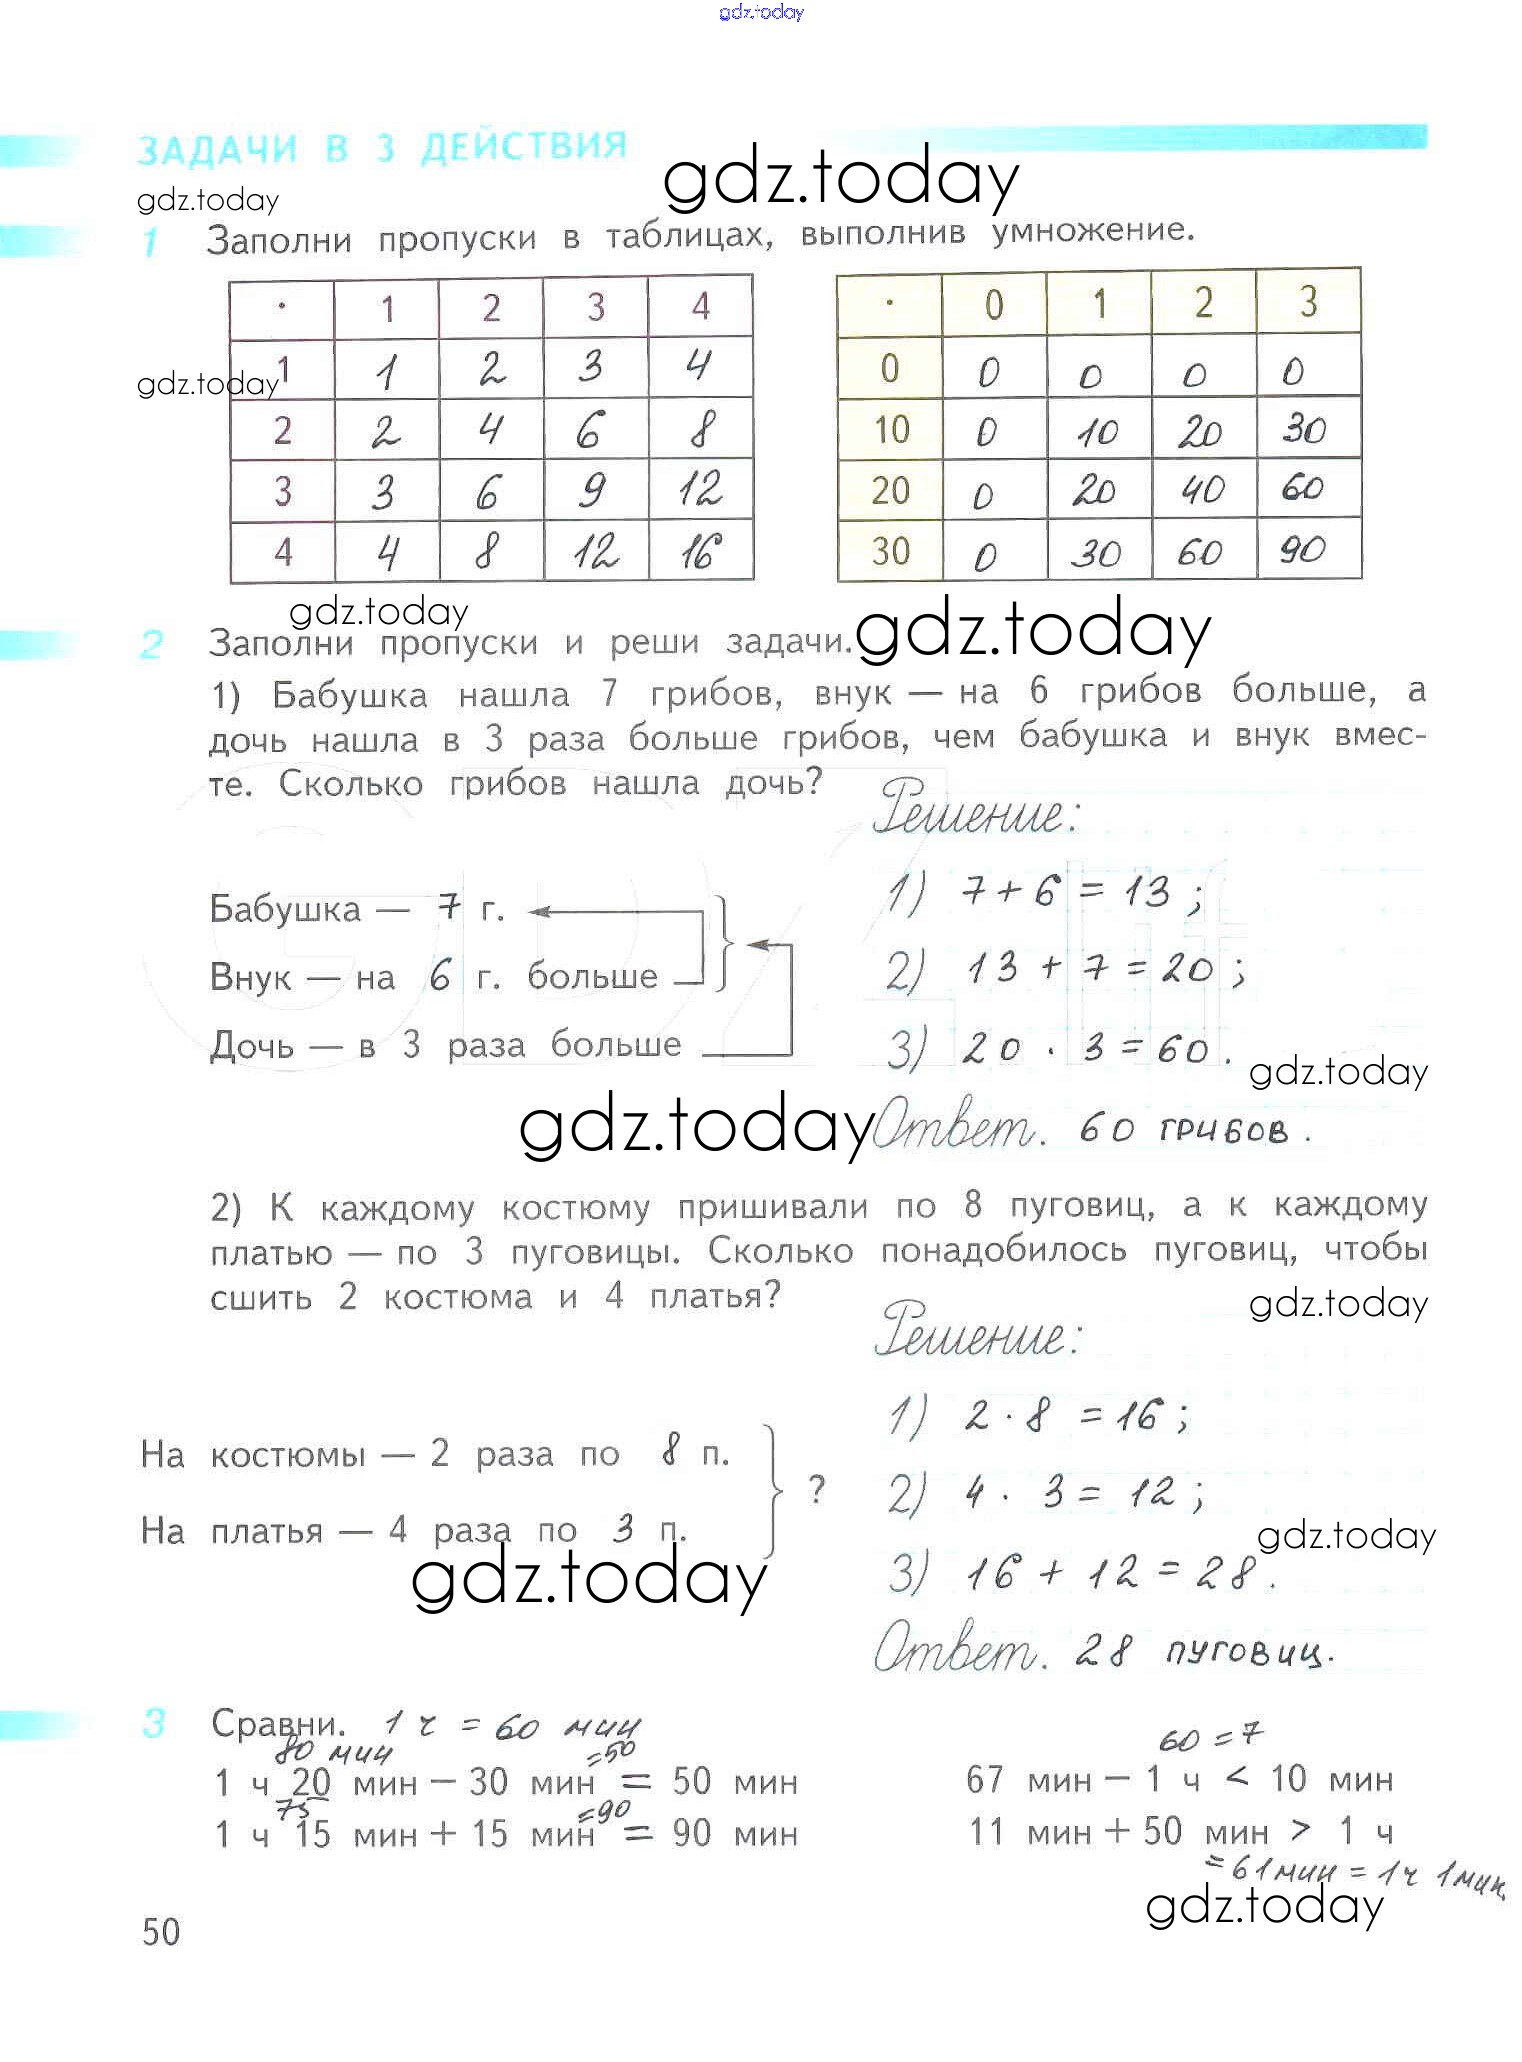 gdz.today
ЗАДАЧИ В 3 ДЕЙСТВИЯ
gdz.today
gdz.today
1 Заполни пропуски в таблицах, выполнив умножение.
· 1 2 3 4
1 1 2 3 4
gdz.today
2 2 4 6 8
3 3 6 9 12
4 4 8 12 16
· 0 1 2 3
0 0 0 0 0
10 0 10 20 30
20 0 20 40 60
30 0 30 60 90
gdz.today
gdz.today
2 Заполни пропуски и реши задачи.
1) Бабушка нашла 7 грибов, внук — на 6 грибов больше, а
дочь нашла в 3 раза больше грибов, чем бабушка и внук вмес-
те. Сколько грибов нашла дочь?
Решение:
Бабушка — 7 г.
Внук — на 6 г. больше
Дочь — в 3 раза больше
1) 7 + 6 = 13 ;
2) 13 + 7 = 20 ;
3) 20 · 3 = 60 .
gdz.today
gdz.today
Ответ. 60 грибов .
2) К каждому костюму пришивали по 8 пуговиц, а к каждому
платью — по 3 пуговицы. Сколько понадобилось пуговиц, чтобы
сшить 2 костюма и 4 платья?
gdz.today
Решение:
На костюмы — 2 раза по 8 п.
На платья — 4 раза по 3 п.
?
1) 2 · 8 = 16 ;
2) 4 · 3 = 12 ;
gdz.today
3) 16 + 12 = 28 .
gdz.today
Ответ. 28 пуговиц.
3 Сравни. 1 ч = 60 мин
80 мин =50
1 ч 20 мин — 30 мин = 50 мин
75 =90
1 ч 15 мин + 15 мин = 90 мин
60 = 7
67 мин — 1 ч < 10 мин
11 мин + 50 мин > 1 ч
= 61 мин = 1 ч 1 мин
gdz.today
50